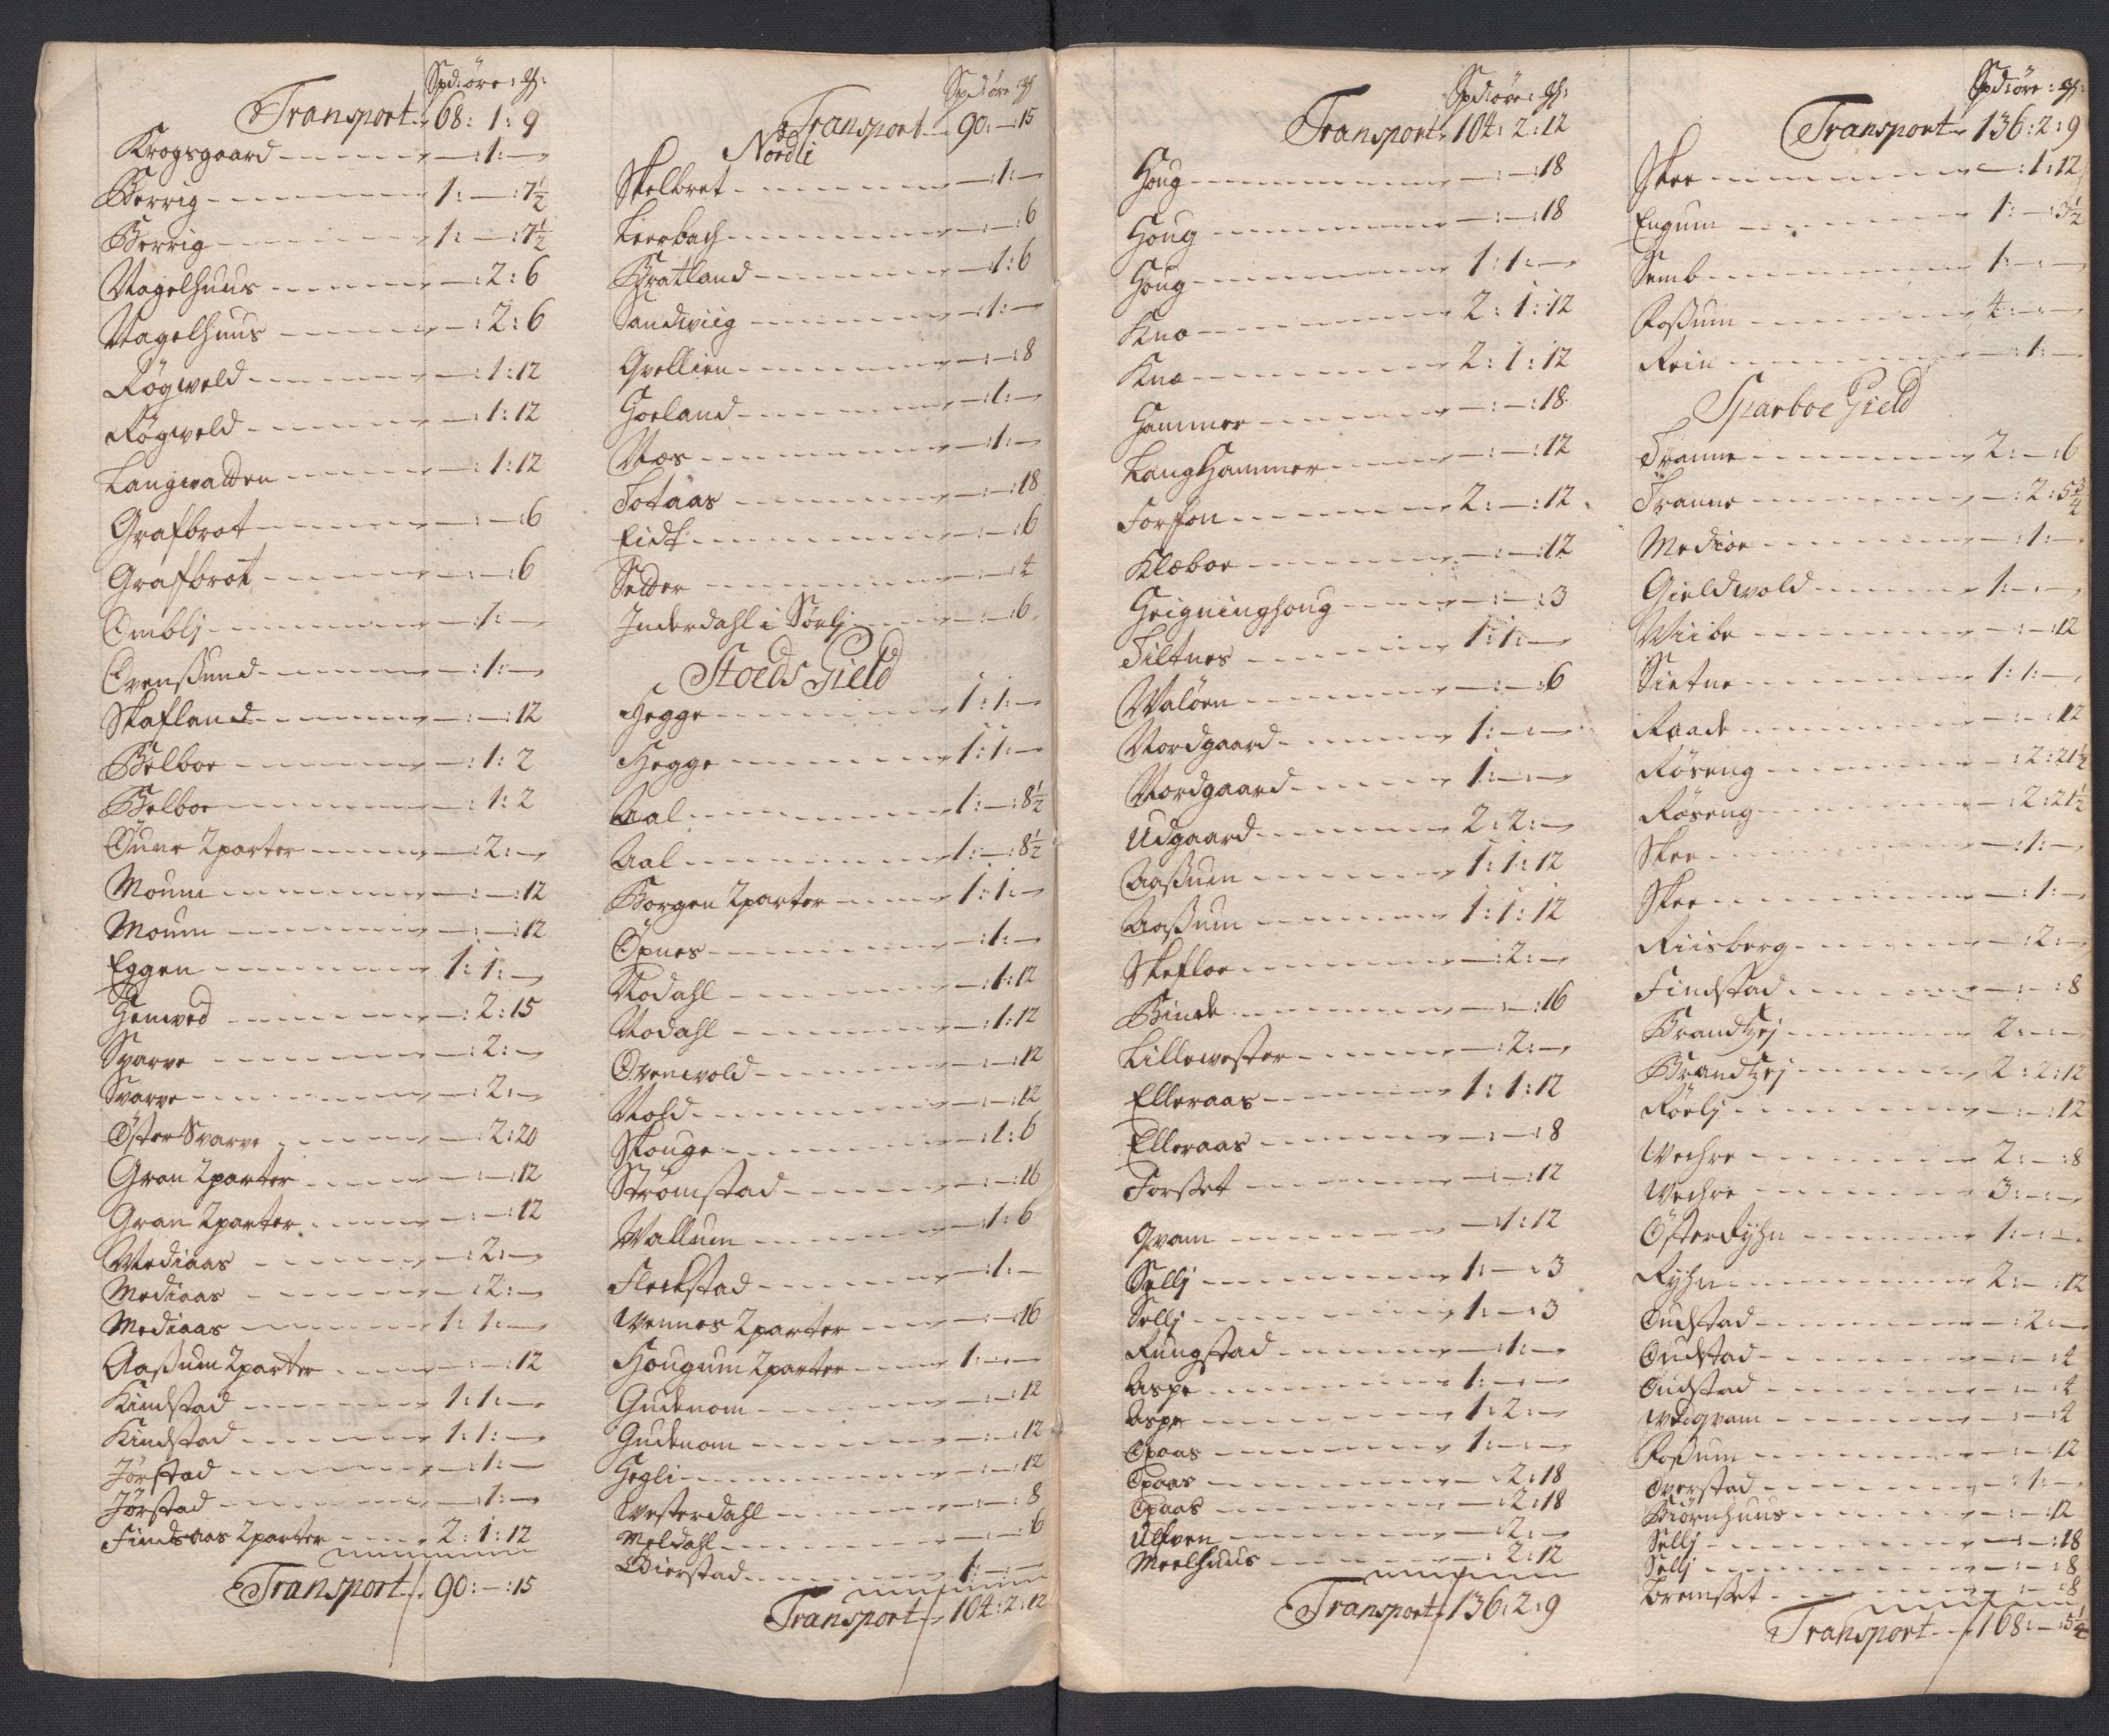 Spd:øre: gſ:
Transport 68: 1: 9
Krogsgaard — : 1: —
Berrig 1: — : 7½
Berrig 1: — : 7½
Nagelhuus — : 2: 6
Nagelhuus — : 2: 6
Røgweld — : 1: 12
Røgweld — : 1: 12
Langwatten — : 1: 12
Grafbrot — : — : 6
Grafbrot — : — : 6
Omblj — : 1: —
Ovensund — : 1: —
Skafland — : — : 12
Belboe — : 1: 2
Belboe — : 1: 2
Dune 2parter — : 2: —
Moum — : — : 12
Moum — : — : 12
Eggen 1: 1: —
Hemved — : 2: 15
Svarve — : 2: —
Svarve — : 2: —
Øster Svarve — : 2: 20
Gran 2parter — : — : 12
Gran 2parter — : — : 12
Mediaas — : 2: —
Mediaas — : 2: —
Mediaas 1: 1: —
Aaßum 2parter — : — : 12
Kindstad 1: 1: —
Kindstad 1: 1: —
Jørstad — : 1: —
Jørstad — : 1: —
Findsaas 2parter 2: 1: 12
Transport 90: — : 15
Spd: øre gſ
Transport 90: — 15
Nordli
Skelbret — : 1: —
Leerbach — : — : 6
Bratland — : 1: 6
Sandwiig — : 1: —
Qvellien — : — : 8
Hoeland — : 1: —
Næs — : 1: —
Totaas — : — : 18
Eidt — : — : 6
Setter — : — : 4
Inderdahl i Sørlj — : — : 6
Stoeds Gield
Hegge 1: 1: —
Hegge 1: 1: —
Aal 1: — : 8½
Aal 1: — : 8½
Borgen 2parter 1: 1: —
Opnes — : 1: —
Nodahl — : 1: 12
Nodahl — : 1: 12
Ovenvold — : — : 12
Vold — : — : 12
Skouge — : 1: 6
Strømstad — : — : 16
Wallum — : 1: 6
Fleckstad — : 1: —
Wennes 2parter — : — : 16
Hougum 2parter 1: — : —
Gudenom — : — : 12
Gudenom — : — : 12
Hegli — : — : 12
Westerdahl — : — : 8
Meldahl — : — : 6
Bierstad 1: — : —
Transport 104: 2: 12
Spd:øre: gſ:
Transport 104: 2: 12
Houg — : — : 18
Houg — : — : 18
Houg 1: 1: —
Knæ 2: 1: 12
Knæ 2: 1: 12
Hammer — : — : 18
LangHammer — : — : 12
Forson 2: — : 12
Klæboe — : — : 12
Heigninghoug — : — : 3
Tiltnes 1: 1: —
Waløen — : — : 6
Nordgaard 1: — : —
Nordgaard 1: — : —
Udgaard 2: 2: —
Aaßum 1: 1: 12
Aaßum 1: 1: 12
Skefloe — : 2: —
Binde — : — : 16
Lillewester — : 2: —
Elleraas 1: 1: 12
Elleraas — : — : 8
Forset — : — : 12
Qvam — : 1: 12
Sellj 1: — : 3
Sellj 1: — : 3
Rungstad — : 1: —
Aspe 1: — : —
Aspe 1: 2: —
Opaas 1: — : —
Opaas — : 2: 18
Opaas — : 2: 18
Ulfven — : 2: —
Meelhuus — : 2: 12
Transport 136: 2: 9
Spd:øre: gſ:
Transport 136: 2: 9
Skee — : 1: 12
Engum 1: — : 3½
Semb 1: — : —
Foßum 4: — : —
Rein — : 1: —
Sparboe Gield
Tranne 2: — : 6
Tranne — : 2: 5¾
Medioe — : 1: —
Gieldwold 1: — : —
Wiibe — : — : 12
Sietne 1: 1: —
Raade — : — : 12
Røseng — : 2: 21½
Røseng — : 2: 21½
Skee — : 1: —
Skee — : 1: —
Riisberg — : 2: —
Findstad — : — : 8
Brandtzej 2: — : —
Brandtzej 2: 2: 12
Røelj — : — : 12
Wechre 2: — : 8
Wechre 3: — : —
ØsterRyhn 1: — : —
Ryhn 2: — : 12
Oudstad — : 2: —
Oudstad — : — : 4
Oudstad — : — : 4
Welqvam — : — : 4
Foßum — : — : 12
Overstad — : 1: —
Biørnhuus — : — : 12
Sellj — : — : 18
Sellj — : — : 8
Bremset — : — : 8
Transport 168: — : 5¼